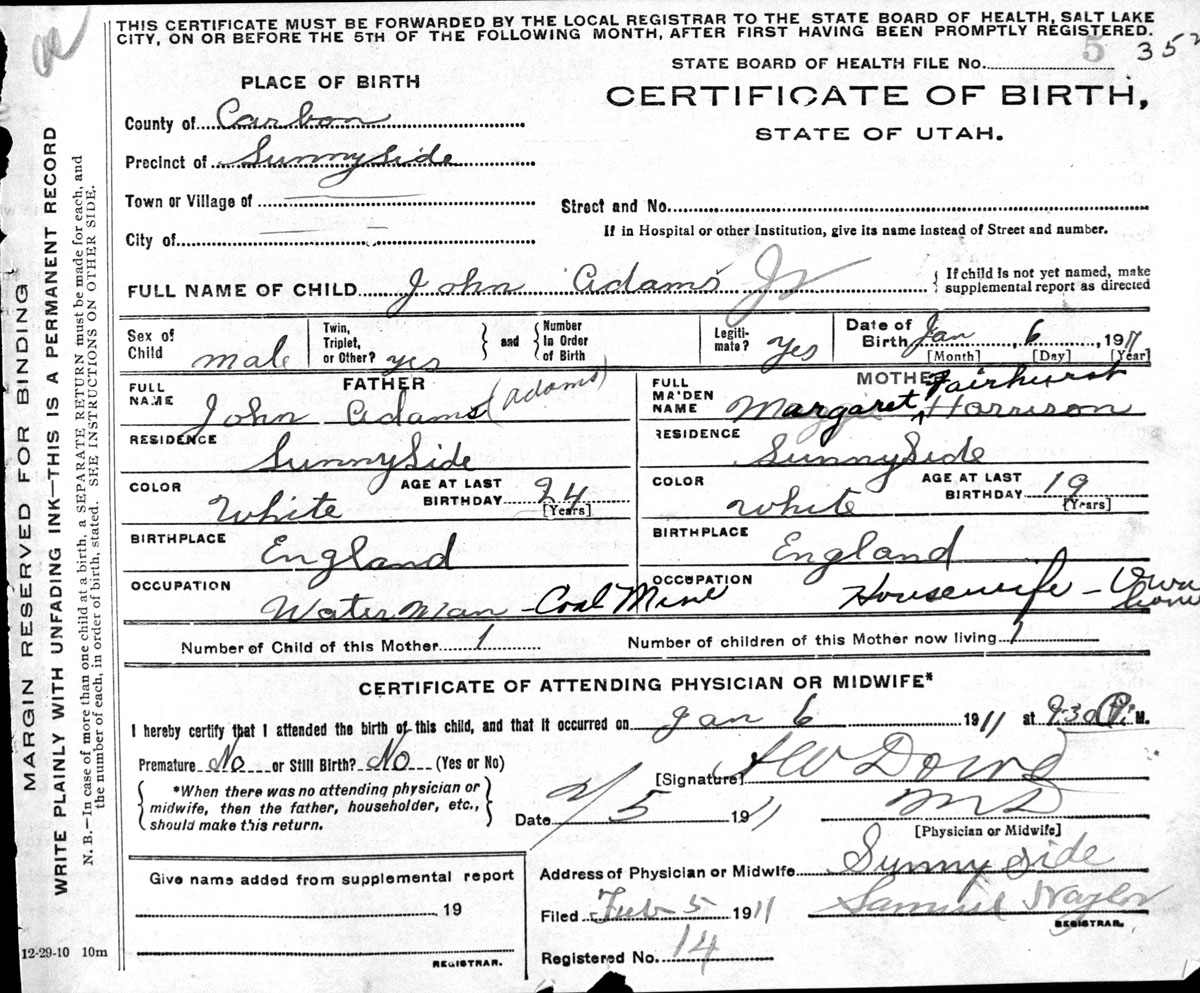 THIS CERTIFICATE MUST BE FORWARDED BY THE LOCAL REGISTRAR TO THE STATE BOARD OF HEALTH, SALT LAKE
CITY, ON OR BEFORE THE 5TH OF THE FOLLOWING MONTH, AFTER FIRST HAVING BEEN PROMPTLY REGISTERED.
5 352
STATE BOARD OF HEALTH FILE No.
PLACE OF BIRTH
CERTIFICATE OF BIRTH,
STATE OF UTAH.
County of Carbon
Precinct of Sunnyside
Town or Village of
Street and No.
City of
If in Hospital or other Institution, give its name instead of Street and number.
FULL NAME OF CHILD John Adams Jr
{ If child is not yet named, make
supplemental report as directed
Sex of Child male
Twin, Triplet, or Other? yes } and { Number In Order of Birth
Legiti-mate? yes
Date of Birth Jan, 6, 1911
[Month] [Day] [Year]
FATHER
FULL NAME John Adams (Adams)
RESIDENCE SunnySide
COLOR White
AGE AT LAST BIRTHDAY 24
[Years]
BIRTHPLACE England
OCCUPATION Water Man - Coal Mine
MOTHER
FULL MAIDEN NAME Margaret Fairhurst Harrison
RESIDENCE SunnySide
COLOR White
AGE AT LAST BIRTHDAY 19
[Years]
BIRTHPLACE England
OCCUPATION Housewife - Own home
Number of Child of this Mother 1
Number of children of this Mother now living 1
CERTIFICATE OF ATTENDING PHYSICIAN OR MIDWIFE*
I hereby certify that I attended the birth of this child, and that it occurred on Jan 6 1911 at 9:30 P. M.
Premature No or Still Birth? No (Yes or No)
[Signature]
MD
[Physician or Midwife]
{ *When there was no attending physician or
midwife, then the father, householder, etc.,
should make this return. }
Date 2/5 1911
Address of Physician or Midwife Sunnyside
Give name added from supplemental report
, 19
REGISTRAR.
Filed Feb 5 1911
Samuel Naylor
REGISTRAR.
Registered No. 14
12-29-10 10m
MARGIN RESERVED FOR BINDING
WRITE PLAINLY WITH UNFADING INK—THIS IS A PERMANENT RECORD
N. B.—In case of more than one child at a birth, a SEPARATE RETURN must be made for each, and
the number of each, in order of birth, stated. SEE INSTRUCTIONS ON OTHER SIDE.